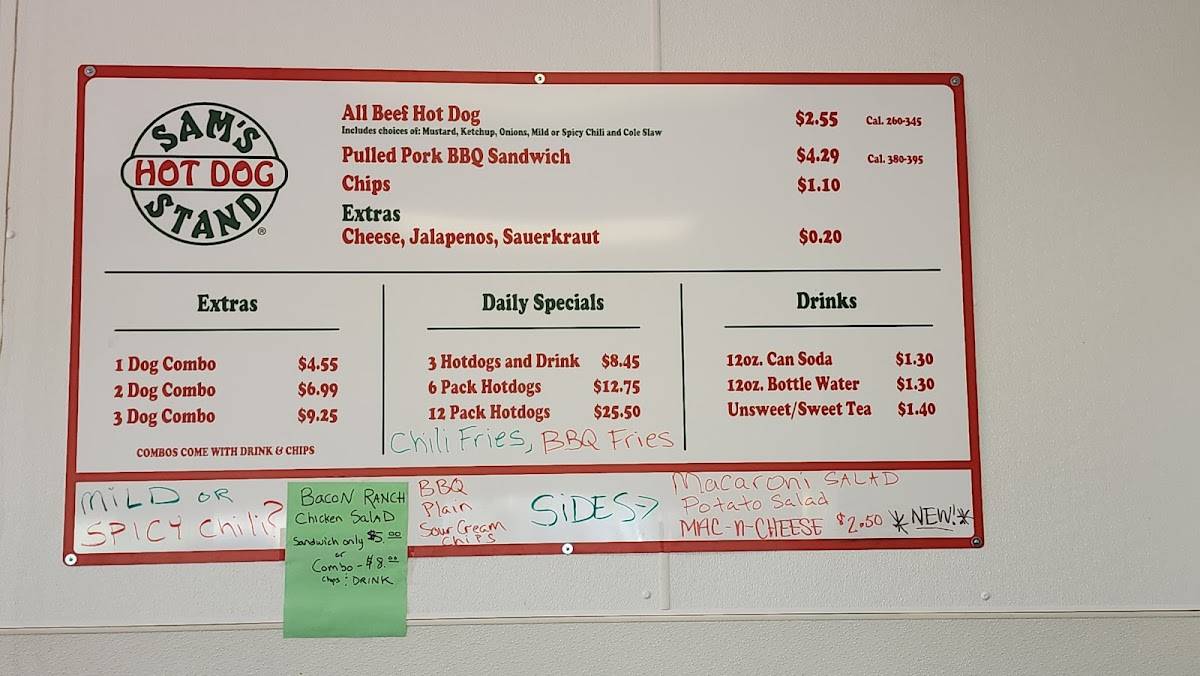 SAM'S
HOT DOG
STAND®
All Beef Hot Dog $2.55 Cal. 260-345
Includes choices of: Mustard, Ketchup, Onions, Mild or Spicy Chili and Cole Slaw
Pulled Pork BBQ Sandwich $4.29 Cal. 380-395
Chips $1.10
Extras
Cheese, Jalapenos, Sauerkraut $0.20
Extras
1 Dog Combo $4.55
2 Dog Combo $6.99
3 Dog Combo $9.25
COMBOS COME WITH DRINK & CHIPS
Daily Specials
3 Hotdogs and Drink $8.45
6 Pack Hotdogs $12.75
12 Pack Hotdogs $25.50
Chili Fries, BBQ Fries
Drinks
12oz. Can Soda $1.30
12oz. Bottle Water $1.30
Unsweet/Sweet Tea $1.40
MILD OR
SPICY Chili?
BACON RANCH
Chicken SALAD
Sandwich only $5.00
or
Combo - $8.00
Chips : DRINK
BBQ
Plain
Sour Cream
CHIPS
SIDES→
Macaroni SALAD
Potato Salad
MAC-N-CHEESE $2.50 *NEW!*